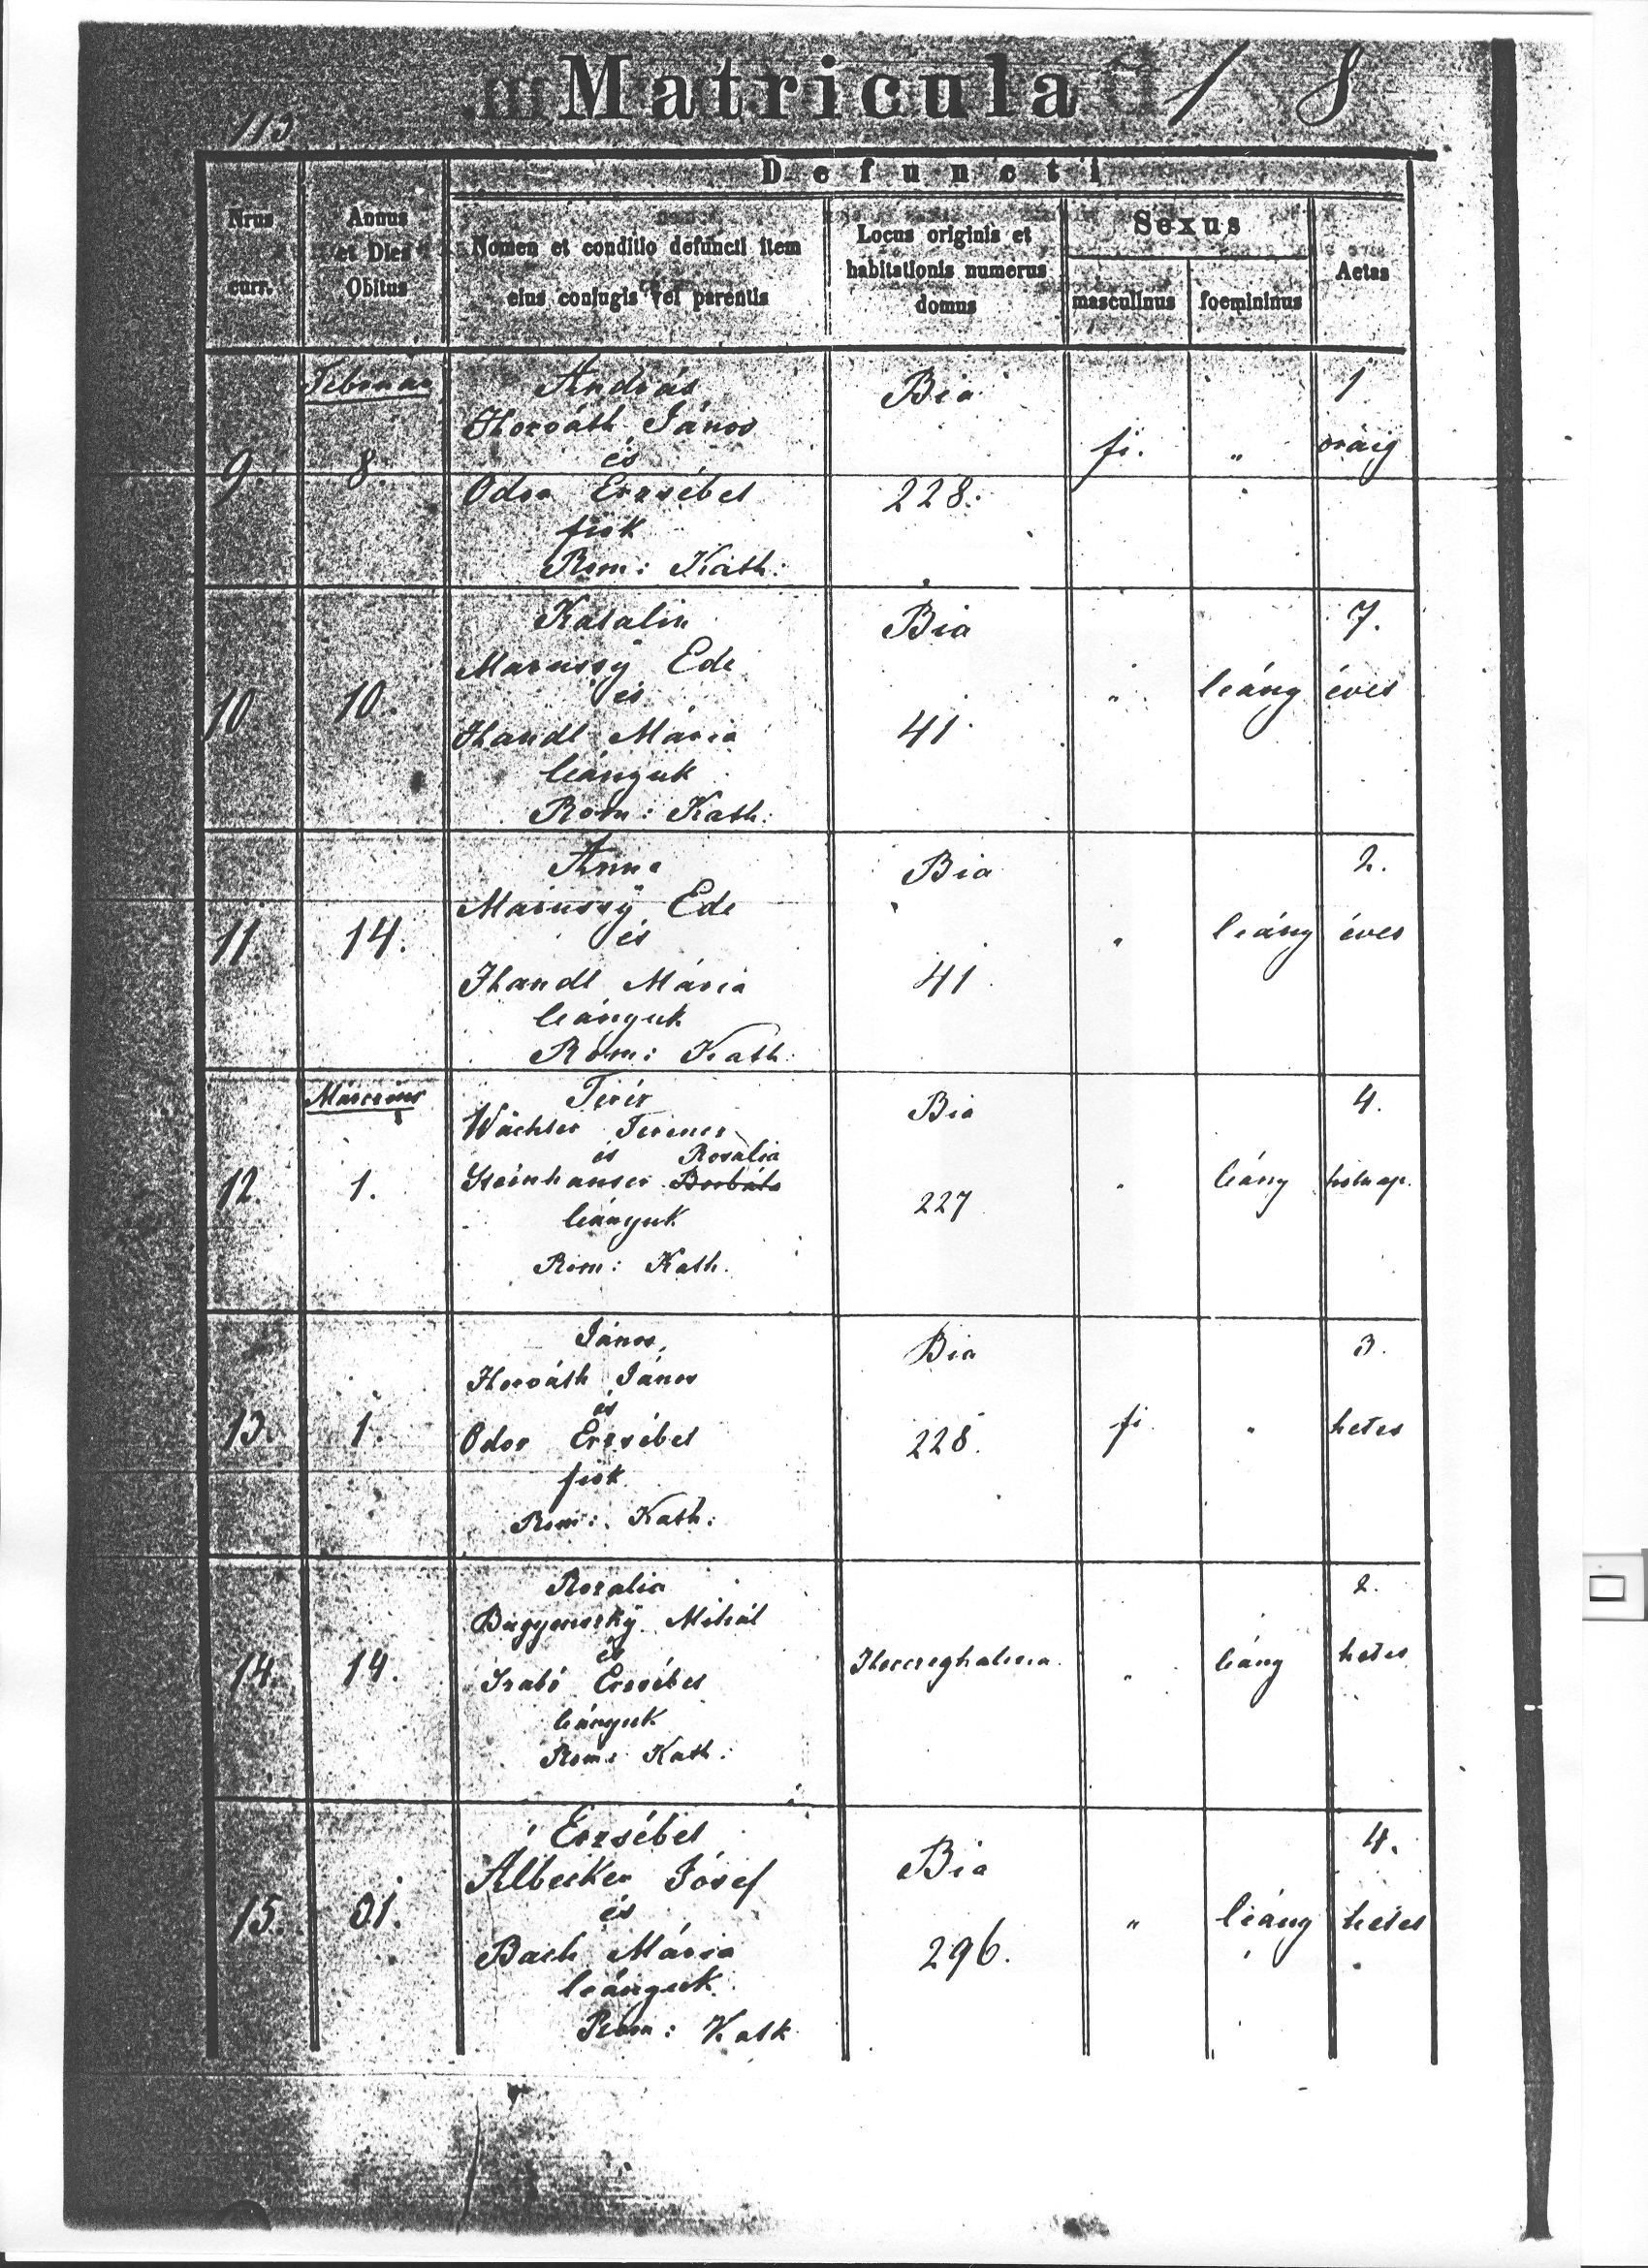 Matricula 1 8
113
Defuncti
Nrus curr.
Annus et Dies Obitus
Nomen et conditio defuncti item eius conjugis vel parentis
Locus originis et habitationis numerus domus
Sexus
masculinus
foemininus
Aetas
Február
9. 8.
András
Horváth János
és
Odor Erzsébet
fiok
Rom: Kath:
Bia
228.
fi. "
1
óráig
10 10.
Katalin
Marussÿ Ede
és
Handl Mária
leányuk
Rom: Kath:
Bia
41.
" leány
7.
éves
11 14.
Anna
Marussÿ Ede
és
Handl Mária
leányuk
Rom: Kath:
Bia
41.
" leány
2.
éves
Márczius
12. 1.
Teréz
Wächter Ferencz
és Rosalia
Steinhauser Borbála
leányuk
Rom: Kath.
Bia
227
" leány
4.
holnap.
13. 1.
János,
Horváth János
és
Odor Erzsébet
fiok
Rom: Kath:
Bia
228.
fi "
3.
hetes
14. 14.
Rozalia
Mihál
és
Szabó Erzsébet
leányuk
Rom: Kath:
Herczeghalma.
" leány
2.
hetes
15. 31.
Erzsébet
Albecker Jósef
és
Bach Mária
leányuk
Róm: Kath
Bia
296.
" leány
4.
hetes